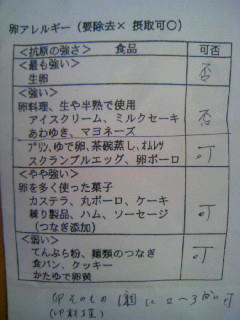 卵アレルギー（要除去× 摂取可○）
＜抗原の強さ＞ 食品 可否
＜最も強い＞
生卵 否
＜強い＞
卵料理、生や半熟で使用
アイスクリーム、ミルクセーキ
あわゆき、マヨネーズ 否
プリン、ゆで卵、茶碗蒸し、オムレツ
スクランブルエッグ、卵ボーロ 可
＜やや強い＞
卵を多く使った菓子
カステラ、丸ボーロ、ケーキ
練り製品、ハム、ソーセージ
（つなぎ添加） 可
＜弱い＞
てんぷら粉、麺類のつなぎ
食パン、クッキー
かたゆで卵黄 可
卵そのもの は 2〜3 可